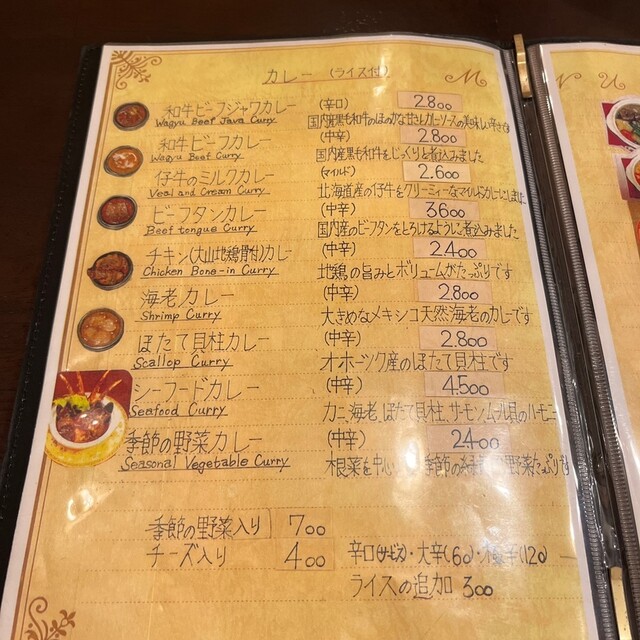 カレー (ライス付)
M
N U
和牛ビーフジャワカレー (辛口) 2.800
Wagyu Beef Java Curry 国内産黒毛和牛のほのかな甘さとカレーソースの美味しい辛さを
和牛ビーフカレー (中辛) 2.800
Wagyu Beef Curry 国内産黒毛和牛をじっくりと煮込みました
仔牛のミルクカレー (マイルド) 2.600
Veal and Cream Curry 北海道産の仔牛をクリーミィーなマイルドカレーにしました
ビーフタンカレー (中辛) 3600
Beef tongue Curry 国内産のビーフタンをとろけるように煮込みました
チキン(大山地鶏骨付)カレー (中辛) 2.400
Chicken Bone-in Curry 地鶏の旨みとボリュームがたっぷりです
海老カレー (中辛) 2.800
Shrimp Curry 大きめなメキシコ天然海老のカレーです
ほたて貝柱カレー (中辛) 2.800
Scallop Curry オホーツク産のほたて貝柱です
シーフードカレー (中辛) 4.500
Seafood Curry カニ、海老、ほたて貝柱、サーモン、ムール貝のハーモニー
季節の野菜カレー (中辛) 2400
Seasonal Vegetable Curry 根菜を中心 季節の 野菜たっぷり
季節の野菜入り 700
チーズ入り 400 辛口(サービス)・大辛(60)・極辛(120)
ライスの追加 300